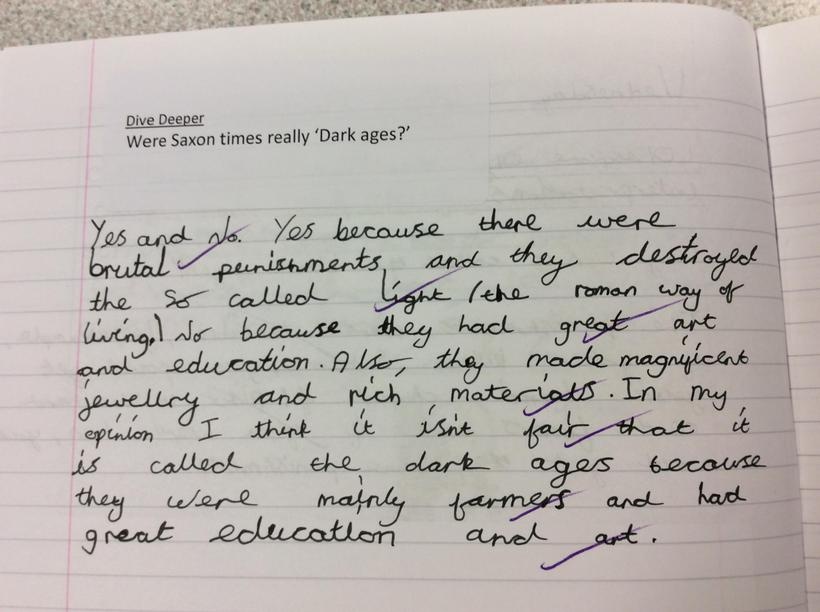 Dive Deeper
Were Saxon times really 'Dark ages?'
Yes and No. Yes because there were
brutal punishments, and they destroyed
the so called light (the roman way of
living.) No because they had great art
and education. Also, they made magnificent
jewellry and rich materials. In my
opinion I think it isn't fair that it
is called the dark ages because
they were mainly farmers and had
great education and art.